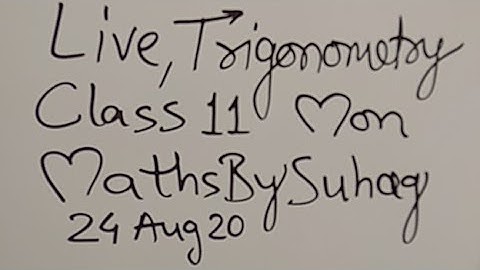 Live, Trigonometry
Class 11 Mon
MathsBySuhag
24 Aug 20